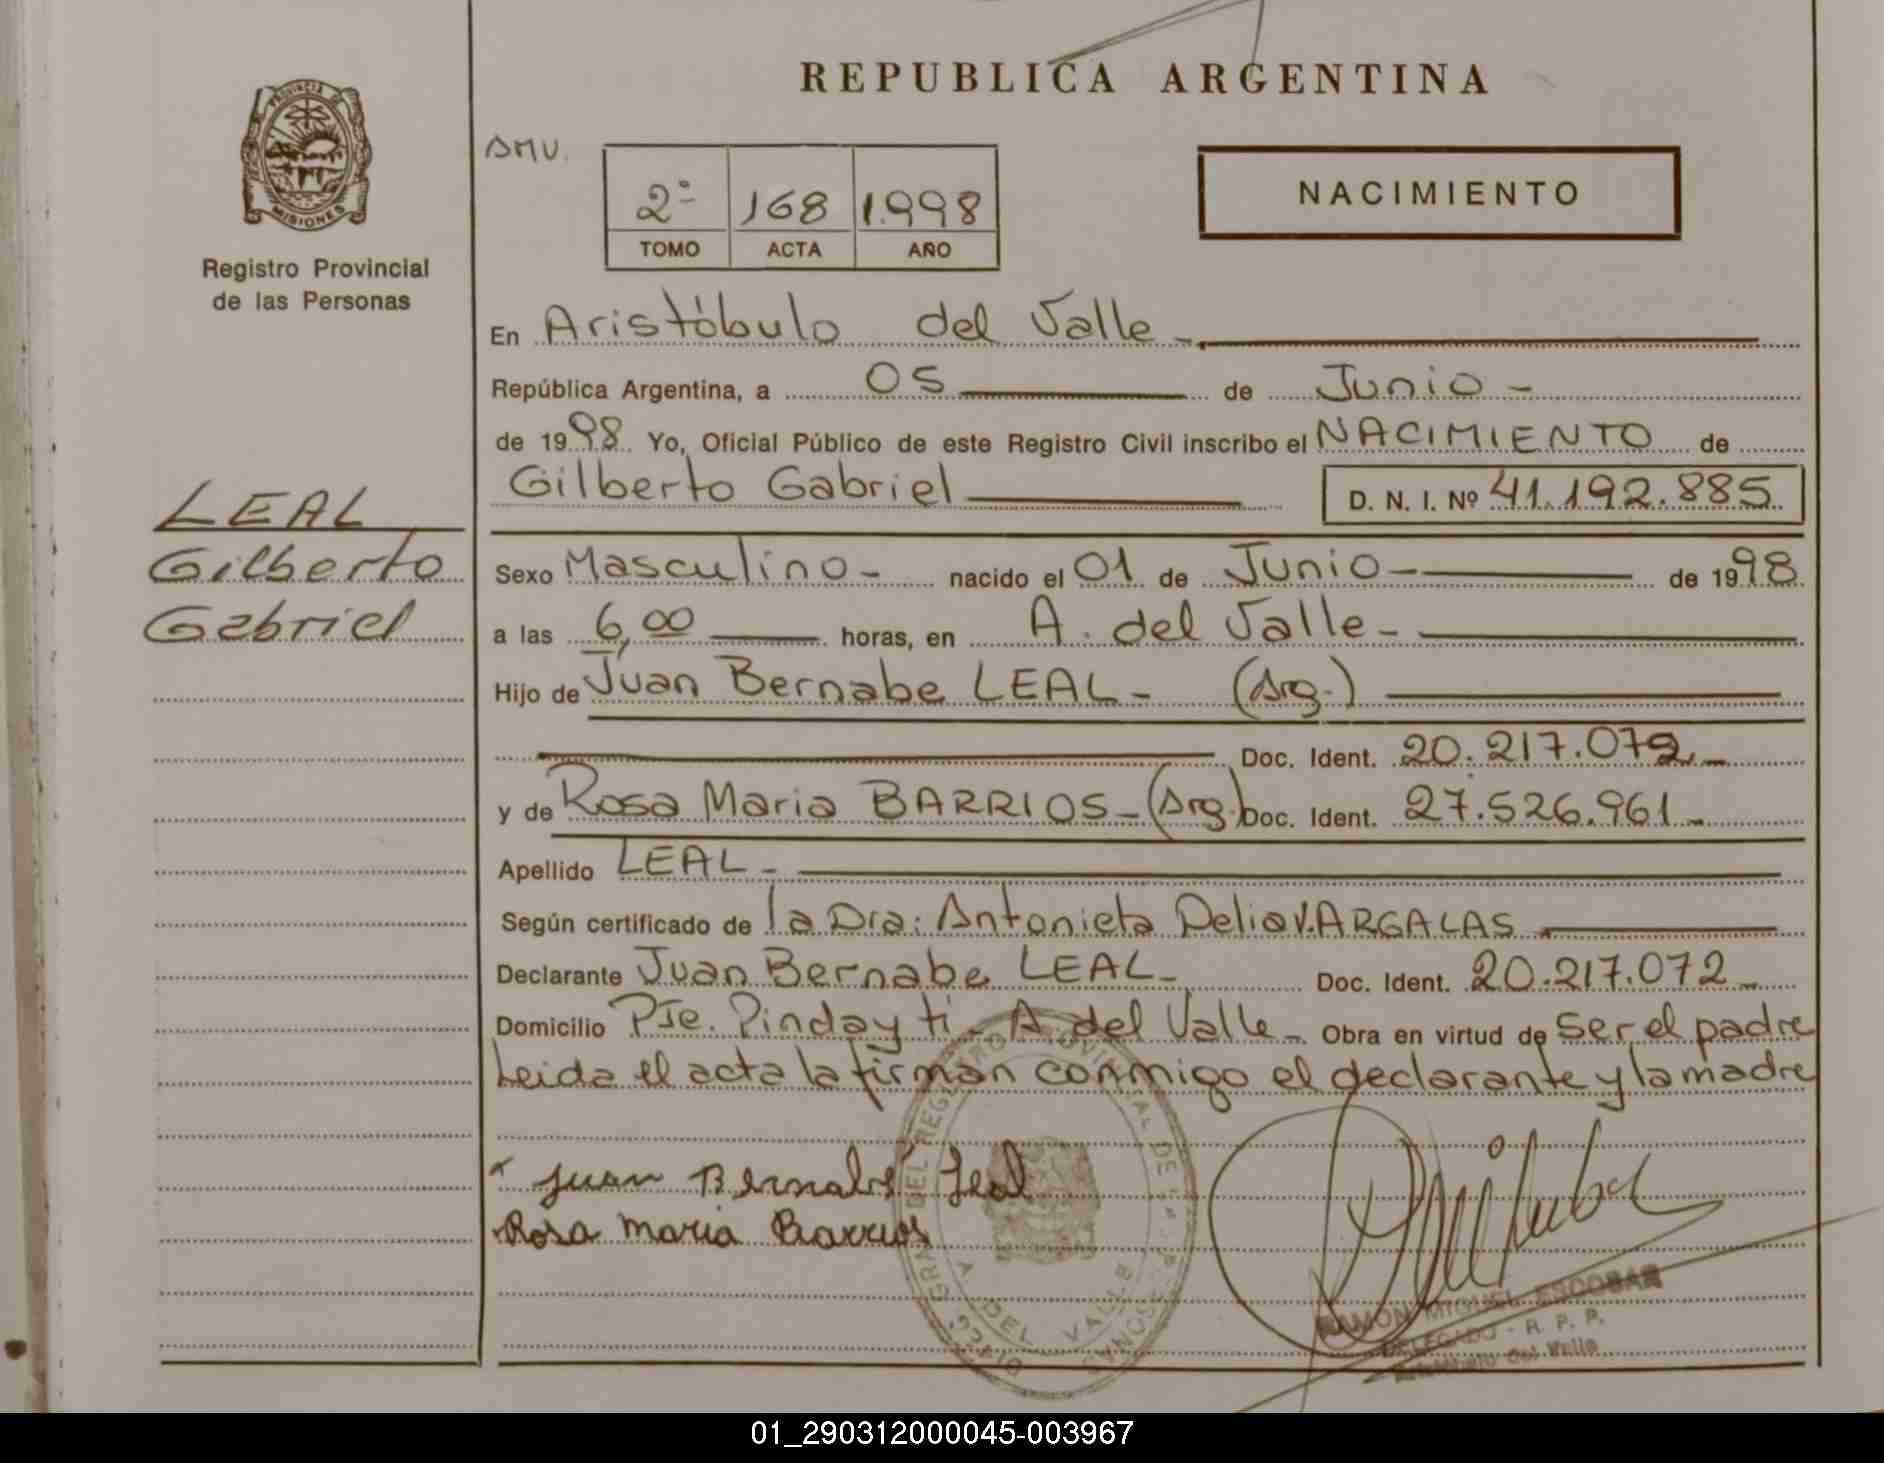 REPUBLICA ARGENTINA
PROVINCIA DE
MISIONES
Registro Provincial
de las Personas
DMU.
2º 168 1.998
TOMO ACTA AÑO
NACIMIENTO
En Aristóbulo del Valle -
República Argentina, a 05 de Junio -
de 1998. Yo, Oficial Público de este Registro Civil inscribo el NACIMIENTO de
Gilberto Gabriel D. N. I. Nº 41.192.885.
LEAL
Gilberto
Gabriel
Sexo Masculino - nacido el 01 de Junio - de 1998.
a las 6,00 horas, en A. del Valle -
Hijo de Juan Bernabe LEAL - (Arg.)
Doc. Ident. 20.217.072.-
y de Rosa Maria BARRIOS - (Arg.) Doc. Ident. 27.526.961 -
Apellido LEAL -
Según certificado de la Dra: Antonieta Delia V.ARGALAS
Declarante Juan Bernabe LEAL - Doc. Ident. 20.217.072 -
Domicilio Pje. Pindayti - A del Valle - Obra en virtud de ser el padre
Leida el acta la firman conmigo el declarante y la madre
Juan Bernabé Leal
Rosa Maria Barrios
DEL REGISTRO PROVINCIAL DE LAS PERSONAS
A DEL VALLE
RAMON MIGUEL ESCOBAR
DELEGADO - R. P. P.
Aristóbulo del Valle
01_290312000045-003967